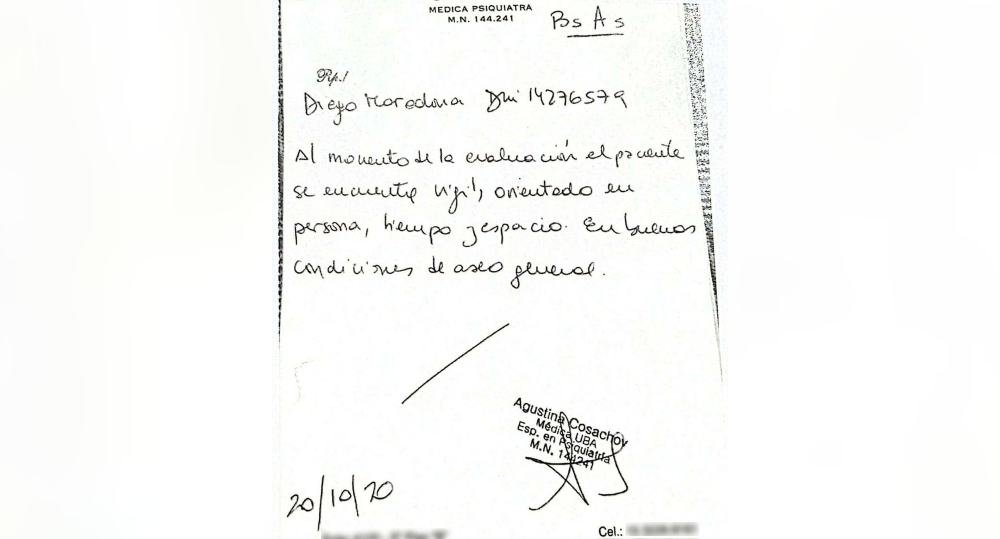 MEDICA PSIQUIATRA
M.N. 144.241
Bs As
Rp./
Diego Maradona Dni 14276579
Al momento de la evaluación el paciente
se encuentra vigil, orientado en
persona, tiempo y espacio. En buenas
condiciones de aseo general.
Agustina Cosachov
Médica UBA
Esp. en Psiquiatría
M.N. 144241
20/10/20
Cel.: